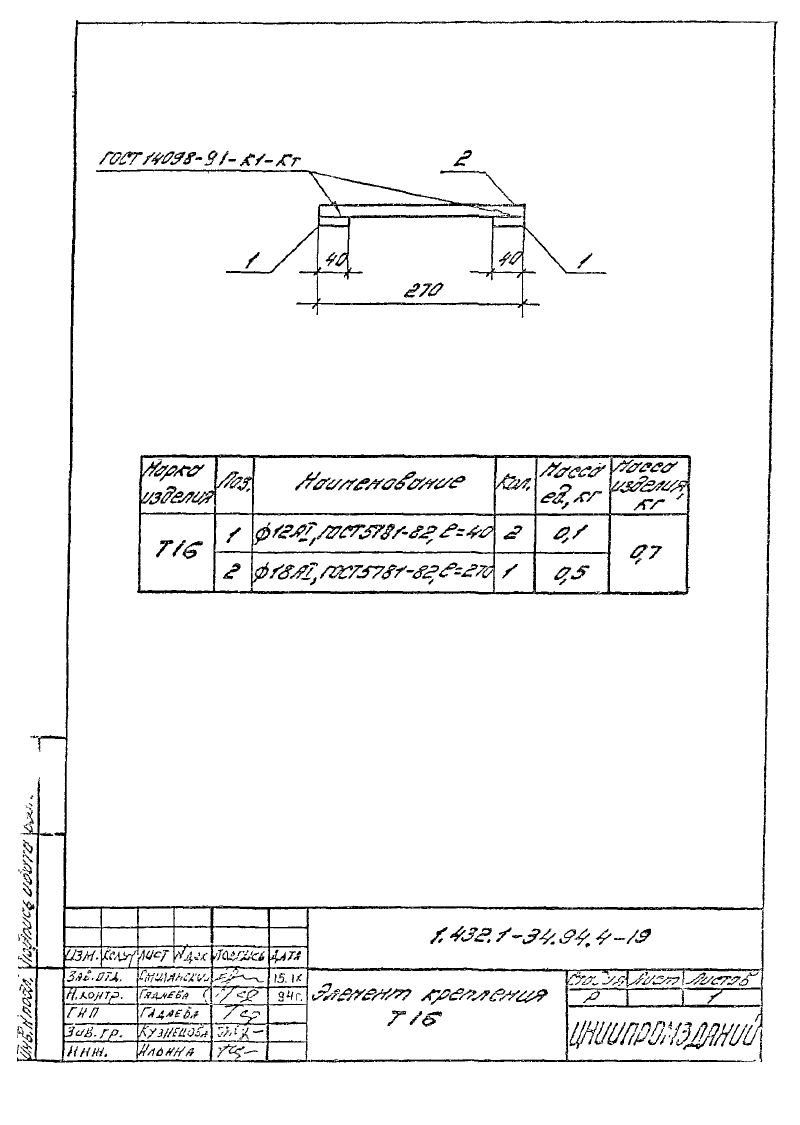 ГОСТ 14098-91-К1-Кт
2
1
40
40
1
270
Марка изделия
Поз.
Наименование
Кол.
Масса ед., кг
Масса изделия, кг
Т16
1
ϕ12АI, ГОСТ 5781-82, ℓ=40
2
0,1
0,7
2
ϕ18АI, ГОСТ 5781-82, ℓ=270
1
0,5
1.432.1-34.94.4-19
ИЗМ. Кол.уч ЛИСТ N док ПОДПИСЬ ДАТА
ЗАВ. ОТД. СМИЛЯНСКИЙ 15.IX
Н.КОНТР. ГАДАЕВА 94г.
ГИП ГАДАЕВА
ЗАВ. ГР. КУЗНЕЦОВА
ИНЖ. ИЛЬИНА
Элемент крепления
Т 16
Стадия Лист Листов
Р 1
ЦНИИПРОМЗДАНИЙ
ИНВ. N подл. Подпись и дата